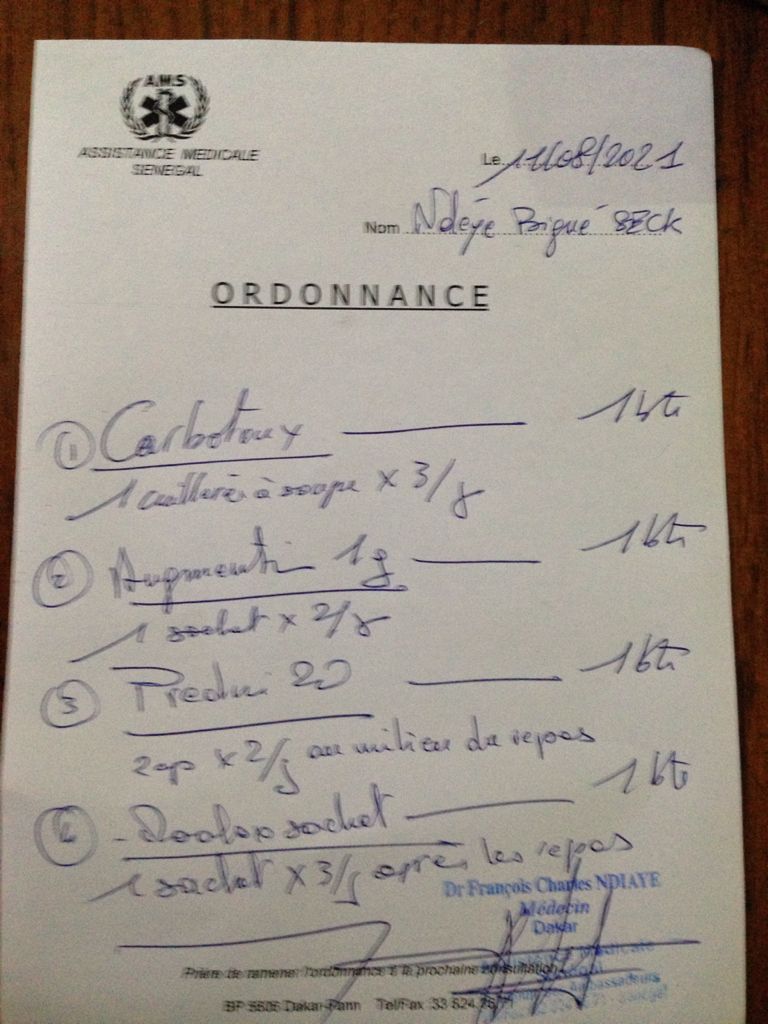 A.M.S
ASSISTANCE MEDICALE
SENEGAL
Le 11/08/2021
Nom Ndéye Bigué SECK
ORDONNANCE
① Carbotoux 1 bte
1 cuillerée à soupe x 3/j
② Augmentin 1g 1 bte
1 sachet x 2/j
③ Predni 20 1 bte
2cp x 2/j au milieu du repas
- sachet 1 bte
1 sachet x 3/j après les repas
Dr François Charles NDIAYE
Médecin
Dakar
Prière de ramener l'ordonnance à la prochaine consultation
BP 5606 Dakar-Fann Tel/Fax 33 824